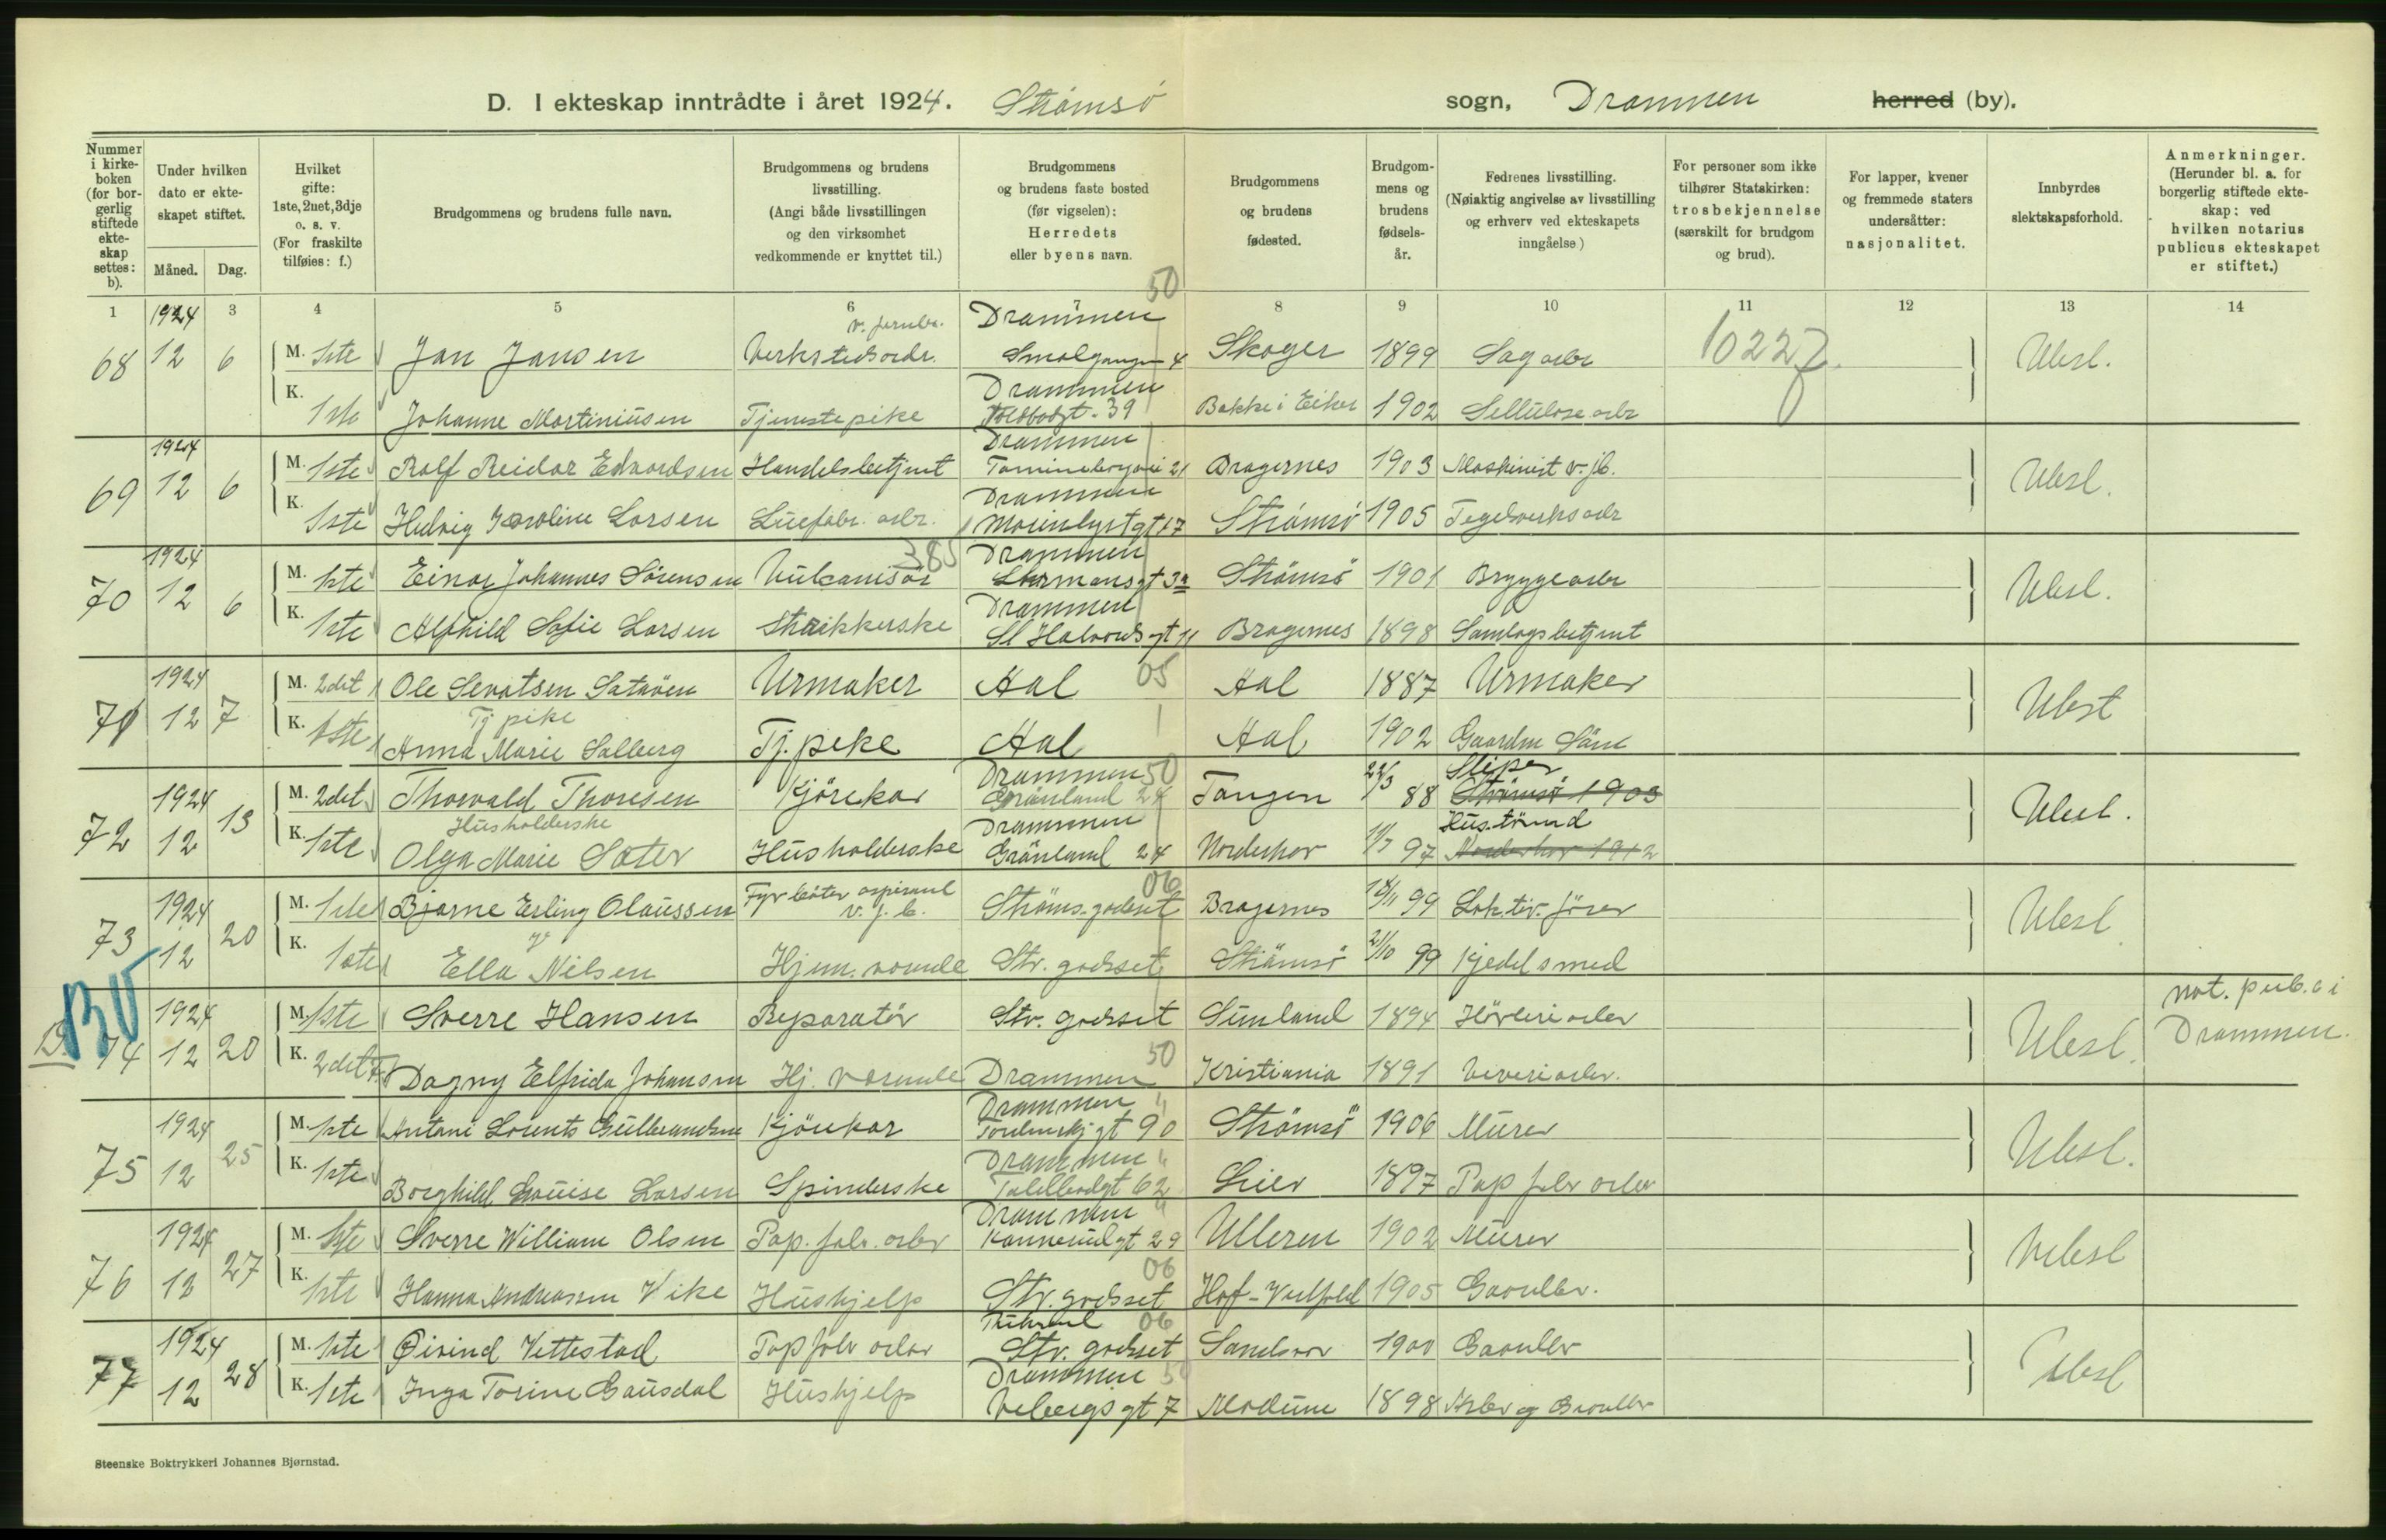 D. I ekteskap inntrådte i året 1924. Strømsö sogn, Drammen herred (by).
Nummer i kirke-boken (for bor-gerlig stiftede ekte-skap settes: b).
Under hvilken dato er ekte-skapet stiftet.
Måned. Dag.
Hvilket gifte: 1ste, 2net, 3dje o. s. v. (For fraskilte tilføies: f.)
Brudgommens og brudens fulle navn.
Brudgommens og brudens livsstilling. (Angi både livsstillingen og den virksomhet vedkommende er knyttet til.)
Brudgommens og brudens faste bosted (før vigselen): Herredets eller byens navn.
Brudgommens og brudens fødested.
Brudgom-mens og brudens fødsels-år.
Fedrenes livsstilling. (Nøiaktig angivelse av livsstilling og erhverv ved ekteskapets inngåelse.)
For personer som ikke tilhører Statskirken: trosbekjennelse (særskilt for brudgom og brud).
For lapper, kvener og fremmede staters undersåtter: nasjonalitet.
Innbyrdes slektskapsforhold.
Anmerkninger. (Herunder bl. a. for borgerlig stiftede ekte-skap: ved hvilken notarius publicus ekteskapet er stiftet.)
1 3 4 5 6 7 8 9 10 11 12 13 14
50
68 1924 12 6 M. 1ste Jan Jansen Verkstedsarb. v. jernb. Drammen Smalgangen 4 Skoger 1899 Sagarb 10227 Ubsl.
K. 1ste Johanne Martiniusen Tjenestepike Drammen 39 Bakke i Eiker 1902 Sellulose arb
69 1924 12 6 M. 1ste Rolf Reidar Edvardsen Handelsbetjent Drammen 21 Bragernes 1903 Maskinist v. jb. Ubsl.
K. 1ste Hedvig Karoline Larsen Luefabr. arb. Drammen Marienlystgt 17 Strömsö 1905 Tegelverksarb
385
70 1924 12 6 M. 1ste Einar Johannes Sörensen Vulcanisör Drammen 3a Strömsö 1901 Bryggearb Ubsl.
K. 1ste Alfhild Sofie Larsen Strikkerske Drammen St Halvardsgt 11 Bragernes 1898 Samlagsbetjent
71 1924 12 7 M. 2det Ole Sevatsen Sataöen Urmaker Aal 05 Aal 1887 Urmaker Ubsl
K. 1ste Tj pike Anna Marie Solberg Tj. pike Aal Aal 1902 Gaardm
72 1924 12 13 M. 2det Thorvald Thoresen Kjörekar Drammen 50 Grönland 24 Tangen 22/3 88 Sliper Strömsö 1903 Ubsl.
K. 1ste Husholderske Olga Marie Sater Husholderske Drammen Grönland 24 Norderhov 11/7 97 Husmand Norderhov 1912
73 1924 12 20 M. 1ste Bjarne Erling Olaussen Fyrböter aspirant v. j. b. 06 Strömsgodset Bragernes 18/11 99 Lok.tiv. förer Ubsl
K. 1ste Ella Nilsen Hjem. værende Str. godset Strömsö 21/10 99 Kjedelsmed
B. 74 1924 12 20 M. 1ste Sverre Hansen Reparatör Str. godset Sunland 1894 Hövleriarb Ubsl. not. pub. i Drammen.
K. 2det F. Dagny Elfrida Johansen Hj. værende Drammen 50 Kristiania 1891 Veveriarb.
75 1924 12 25 M. 1ste Antoni Lorents Gulbrandsen Kjörekar Drammen " Tordenskj gt 90 Strömsö 1906 Murer Ubsl.
K. 1ste Borghild Louise Larsen Spinderske Drammen " Tollbodgt 62 Lier 1897 Pap fabr arb
76 1924 12 27 M. 1ste Sverre William Olsen Pap. fabr. arb Drammen " 29 Ulleren 1902 Murer Ubsl
K. 1ste Hanna Andreassen Vike Hushjelp 06 Str. godset Hof-Vestfold 1905 Gaardbr.
77 1924 12 28 M. 1ste Øivind Vettestad Pap fabr arb 06 Str. godset Sandsvær 1900 Gaardbr Ubsl
K. 1ste Inga Torine Gausdal Hushjelp Drammen 50 Vebergsgt 7 Modum 1898 Arb og Gaardbr
Steenske Boktrykkeri Johannes Bjørnstad.